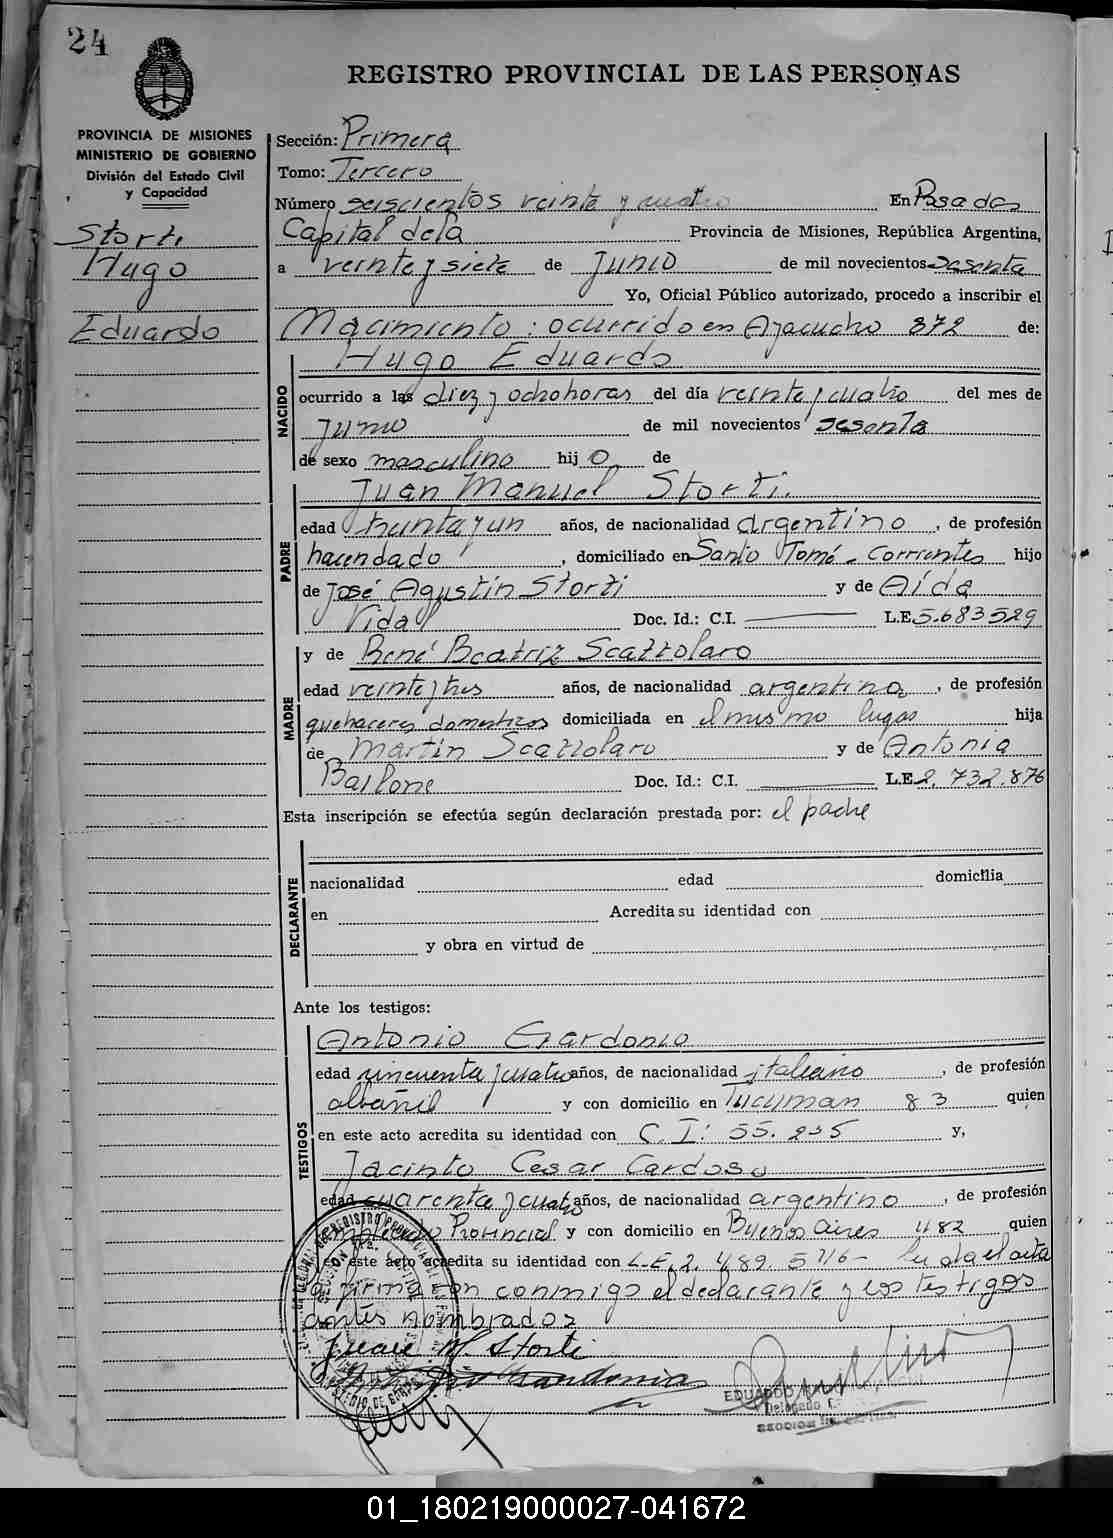 24
REGISTRO PROVINCIAL DE LAS PERSONAS
PROVINCIA DE MISIONES
MINISTERIO DE GOBIERNO
División del Estado Civil
y Capacidad
Storti
Hugo
Eduardo
Sección: Primera
Tomo: Tercero
Número seiscientos veinte y cuatro En Posadas
Capital de la Provincia de Misiones, República Argentina,
a veinte y siete de Junio de mil novecientos sesenta
Yo, Oficial Público autorizado, procedo a inscribir el
Nacimiento: ocurrido en Ayacucho 872 de:
Hugo Eduardo
NACIDO
ocurrido a las diez y ocho horas del día veinte y cuatro del mes de
Junio de mil novecientos sesenta
de sexo masculino hijo de
PADRE
Juan Manuel Storti.
edad treinta y un años, de nacionalidad argentino, de profesión
hacendado, domiciliado en Santo Tomé - Corrientes hijo
de José Agustín Storti y de Aída
Vidal Doc. Id.: C.I. — L.E. 5.683529
MADRE
y de René Beatriz Scazzolaro
edad veinte y tres años, de nacionalidad argentina, de profesión
quehaceres domesticos domiciliada en el mismo lugar hija
de Martín Scazzolaro y de Antonia
Doc. Id.: C.I. — L.E. 2.732.876
Esta inscripción se efectúa según declaración prestada por: el padre
DECLARANTE
nacionalidad edad domicilia
en Acredita su identidad con
y obra en virtud de
Ante los testigos:
TESTIGOS
Antonio Gardonio
edad cincuenta y cuatro años, de nacionalidad italiano, de profesión
albañil y con domicilio en Tucuman 83 quien
en este acto acredita su identidad con C.I: 55.235 y,
Jacinto Cesar Cardoso
edad cuarenta y cuatro años, de nacionalidad argentino, de profesión
empleado Provincial y con domicilio en Buenos Aires 482 quien
en este acto acredita su identidad con L.E. 2.489.546 - Leida el acta
la firmaron conmigo el declarante y los testigos
antes nombrados
Juan M. Storti
EDUARDO
Delegado
SECCION
01_180219000027-041672